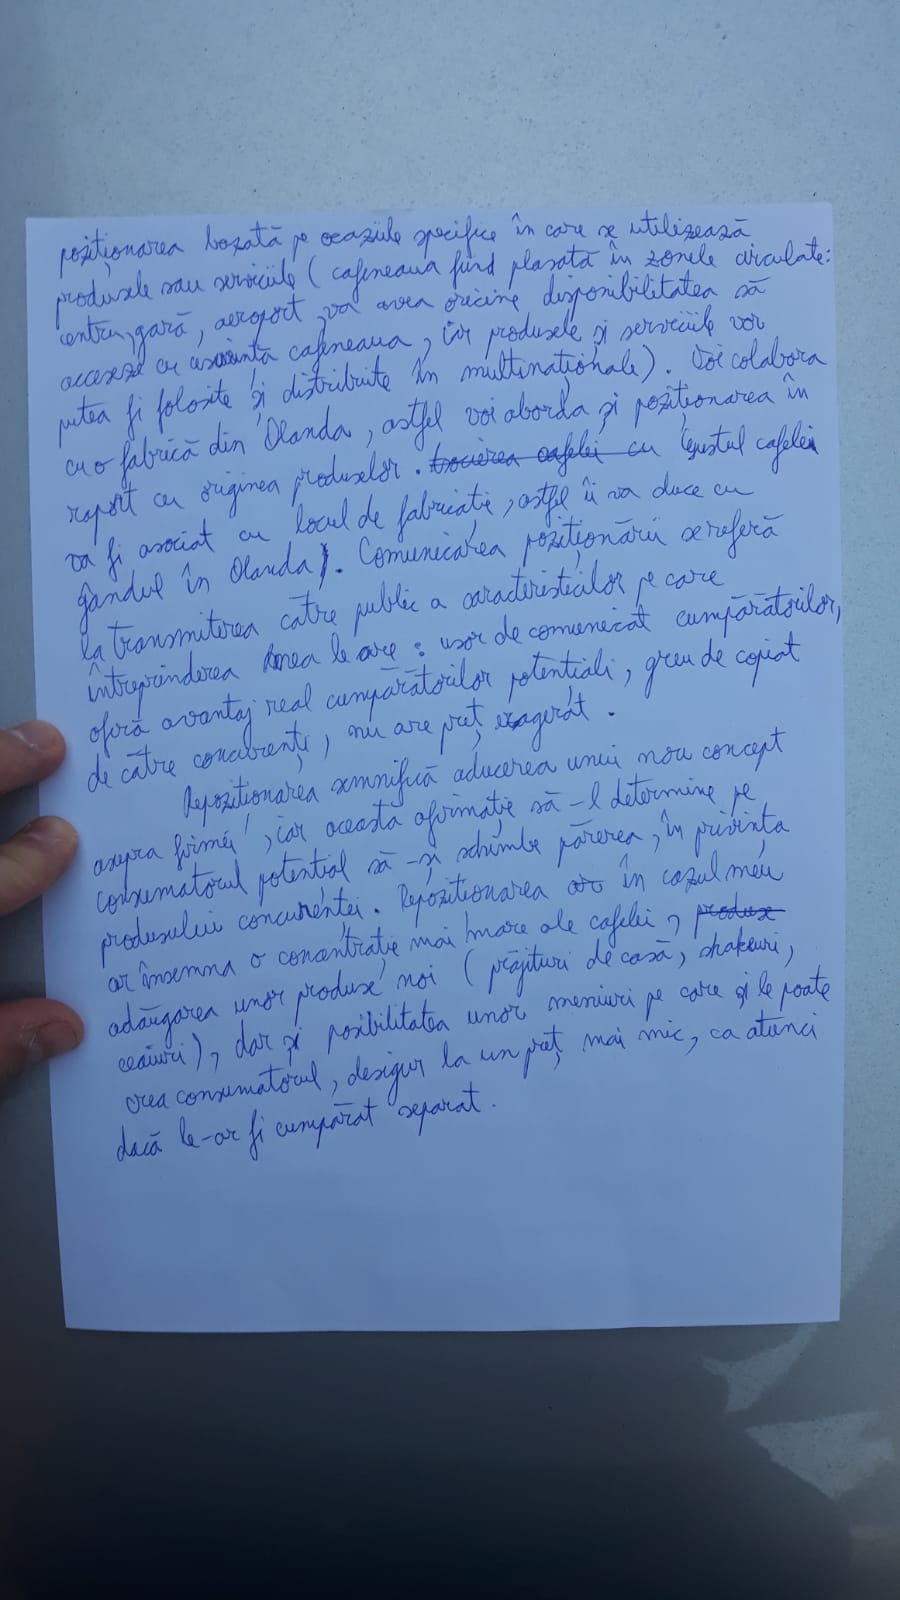 poziționarea bazată pe ocaziile specifice în care se utilizează
produsele sau serviciile (cafeneaua fiind plasată în zonele circulate:
centru, gară, aeroport, va avea oricine disponibilitatea să
acceseze cu ușurința cafeneaua, iar produsele și serviciile vor
putea fi folosite și distribuite în multinaționale). Voi colabora
cu o fabrică din Olanda, astfel voi aborda și poziționarea în
raport cu originea produselor. cafelei cu (gustul cafelei
va fi asociat cu locul de fabricație, astfel îi va duce cu
gândul în Olanda). Comunicarea poziționării se referă
la transmiterea către public a caracteristicilor pe care
întreprinderea mea le are: usor de comunicat cumpărătorilor,
oferă avantaj real cumpărătorilor potentiali, greu de copiat
de către concurenți, nu are preț exagerat.
Repoziționarea semnifică aducerea unui nou concept
asupra firmei, iar aceasta afirmație să-l determine pe
consumatorul potential să-și schimbe părerea, în privința
produsului concurenței. Repozitionarea ar în cazul meu
ar însemna o concentrație mai mare ale cafelei, produse
adăugarea unor produse noi (prăjituri de casă, shakeuri,
ceaiuri), dar și posibilitatea unor meniuri pe care și le poate
crea consumatorul, desigur la un preț mai mic, ca atunci
dacă le-ar fi cumpărat separat.